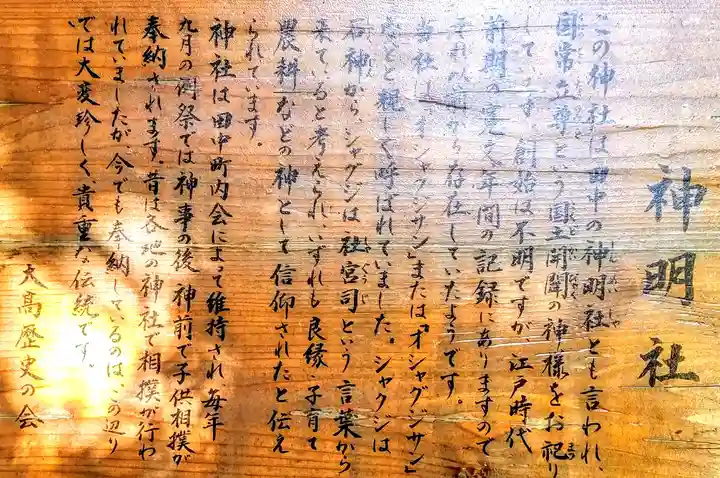 神明社
この神社は田中の神明社とも言われ、
国常立尊という国土開闢の神様をお祀り
しています。創始は不明ですが、江戸時代
前期の寛文年間の記録にありますので
それ以前から存在していたようです。
当社は「オシャクジサン」または「オシャグジサン」
などと親しく呼ばれていました。シャクシは
石神から、シャグジは社宮司という言葉から
来ていると考えられ、いずれも良縁、子育て
農耕などの神として信仰されたと伝え
られています。
神社は田中町内会によって維持され、毎年
九月の例祭では神事の後、神前で子供相撲が
奉納されます。昔は各地の神社で相撲が行わ
れていましたが、今でも奉納しているのは、この辺り
では大変珍しく、貴重な伝統です。
大高歴史の会